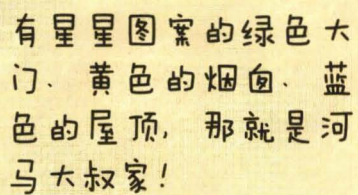 有星星图案的绿色大
门、黄色的烟囱、蓝
色的屋顶，那就是河
马大叔家！